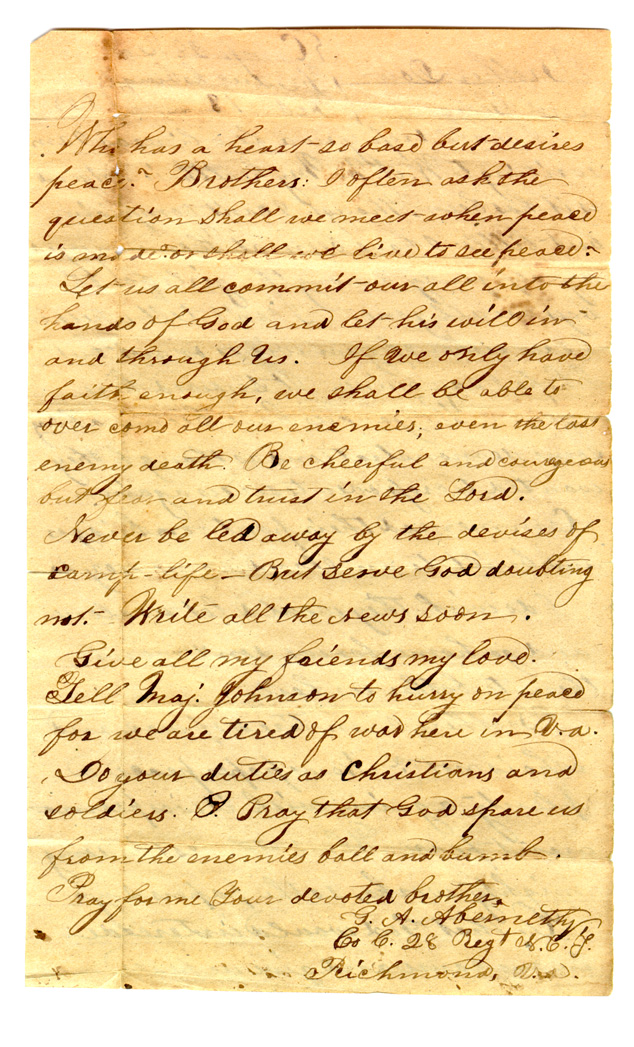 Who has a heart so base but desires
peace? Brothers: I often ask the
question shall we meet when peace
is made? or shall we live to see peace?
Let us all commit our all into the
hands of God and let his will in
and through us. If we only have
faith enough, we shall be able to
over come all our enemies, even the last
enemy death. Be cheerful and courageous
but fear and trust in the Lord.
Never be led away by the devises of
camp-life - But serve God doubting
not. - Write all the news soon.
Give all my friends my love.
Tell Maj. Johnson to hurry on peace
for we are tired of war here in Va.
Do your duties as Christians and
soldiers. I Pray that God spare us
from the enemies ball and bumb.
Pray for me Your devoted brother,
F. A. Abernethy
Co C. 28 Regt N.C.T.
Richmond, Va.